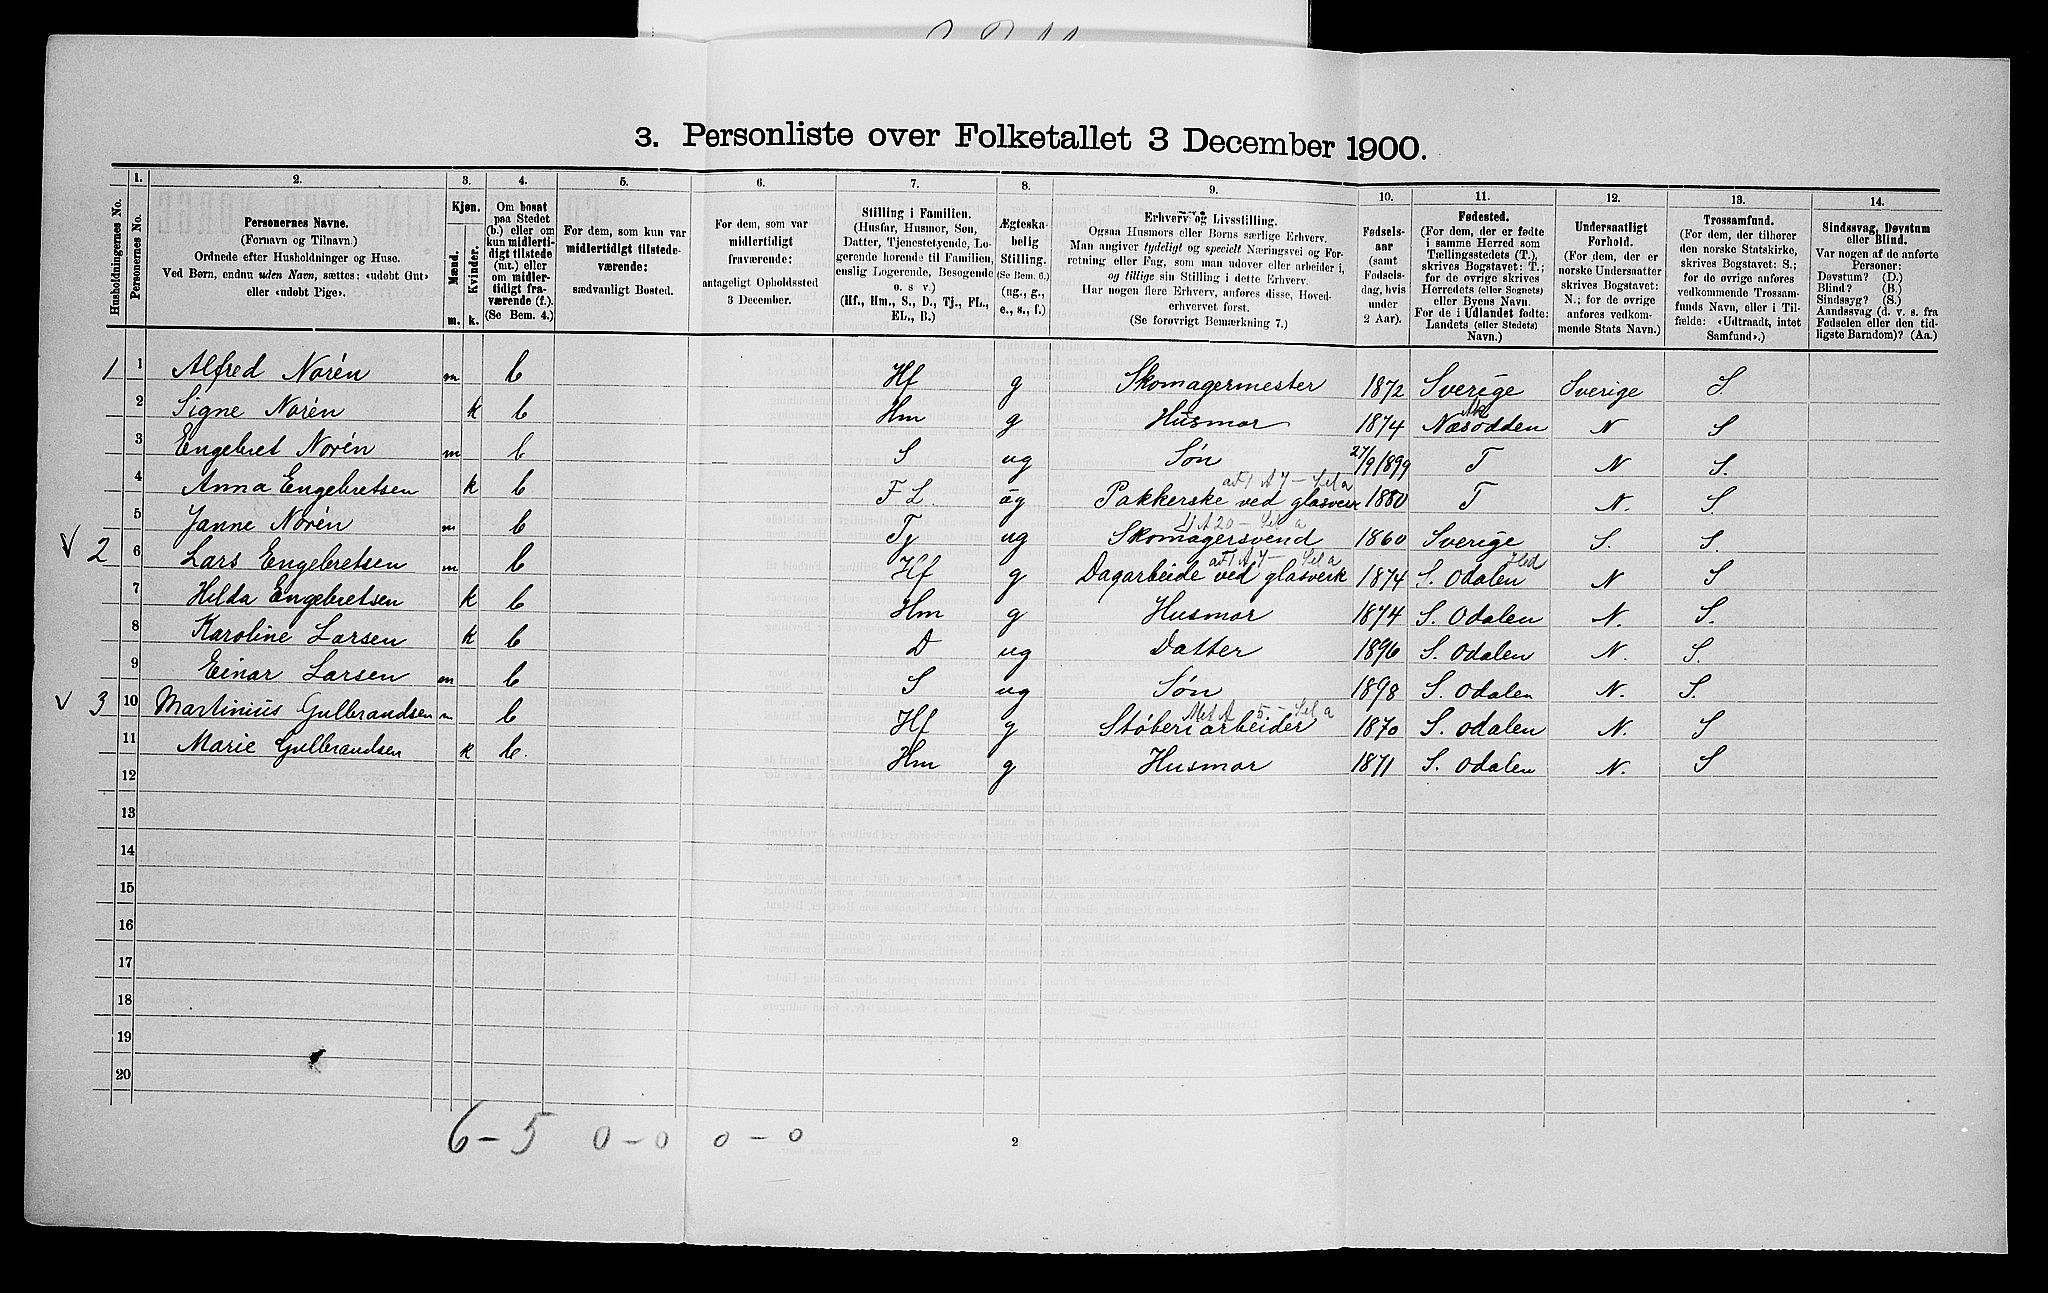 3. Personliste over Folketallet 3 December 1900.
Husholdningernes No.
1. Personernes No.
2. Personernes Navne. (Fornavn og Tilnavn.) Ordnede efter Husholdninger og Huse. Ved Børn, endnu uden Navn, sættes: «udøbt Gut» eller «udøbt Pige».
3. Kjøn. Mænd. m. Kvinder. k.
4. Om bosat paa Stedet (b.) eller om kun midlertidigt tilstede (mt.) eller om midlertidigt fraværende (f.). (Se Bem. 4.)
5. For dem, som kun var midlertidigt tilstedeværende: sædvanligt Bosted.
6. For dem, som var midlertidigt fraværende: antageligt Opholdssted 3 December.
7. Stilling i Familien. (Husfar, Husmor, Søn, Datter, Tjenestetyende, Logerende hørende til Familien, enslig Logerende, Besøgende o. s v.) (Hf., Hm., S., D., Tj., FL., EL., B.)
8. Ægteskabelig Stilling. (Se Bem. 6.) (ug., g., e., s., f.)
9. Erhverv og Livsstilling. Ogsaa Husmors eller Børns særlige Erhverv. Man angiver tydeligt og specielt Næringsvei og Forretning eller Fag, som man udøver eller arbeider i, og tillige sin Stilling i dette Erhverv. Har nogen flere Erhverv, anføres disse, Hovederhvervet først. (Se forøvrigt Bemærkning 7.)
10. Fødselsaar (samt Fødselsdag, hvis under 2 Aar).
11. Fødested. (For dem, der er fødte i samme Herred som Tællingsstedets (T.), skrives Bogstavet: T.; for de øvrige skrives Herredets (eller Sognets) eller Byens Navn. For de i Udlandet fødte: Landets (eller Stedets) Navn.)
12. Undersaatligt Forhold. (For dem, der er norske Undersaatter skrives Bogstavet: N.; for de øvrige anføres vedkommende Stats Navn.)
13. Trossamfund. (For dem, der tilhører den norske Statskirke, skrives Bogstavet: S.; for de øvrige anføres vedkommende Trossamfunds Navn, eller i Tilfælde: «Udtraadt, intet Samfund».)
14. Sindssvag, Døvstum eller Blind. Var nogen af de anførte Personer: Døvstum? (D.) Blind? (B.) Sindssyg? (S.) Aandssvag (d. v. s. fra Fødselen eller den tidligste Barndom)? (Aa.)
1 1 Alfred Norén m b Hf g Skomagermester 1872 Sverige Sverige S.
2 Signe Norén k b Hm g Husmor 1874 Næsodden N S
3 Engebret Norén m b S ug Søn 27/9 1899 T N S.
4 Anna Engebretsen k b F L. ug Pakkerske ved glasverk 1880 T N. S.
5 Janne Norén m b Ty ug Skomagersvend 1860 Sverige S. S.
V 2 6 Lars Engebretsen m b Hf g Dagarbeide ved glasverk 1874 S. Odalen N S
7 Hilda Engebretsen k b Hm g Husmor 1874 S. Odalen N. S.
8 Karoline Larsen k b D ug Datter 1896 S. Odalen N. S.
9 Einar Larsen m b S ug Søn 1898 S. Odalen N. S.
V 3 10 Martinius Gulbrandsen m b Hf g Støberiarbeider 1870 S. Odalen N. S
11 Marie Gulbrandsen k b. Hm g Husmor 1871 S. Odalen N. S
12
13
14
15
16
17
18
19
20
6 - 5 0 - 0 0 - 0
2